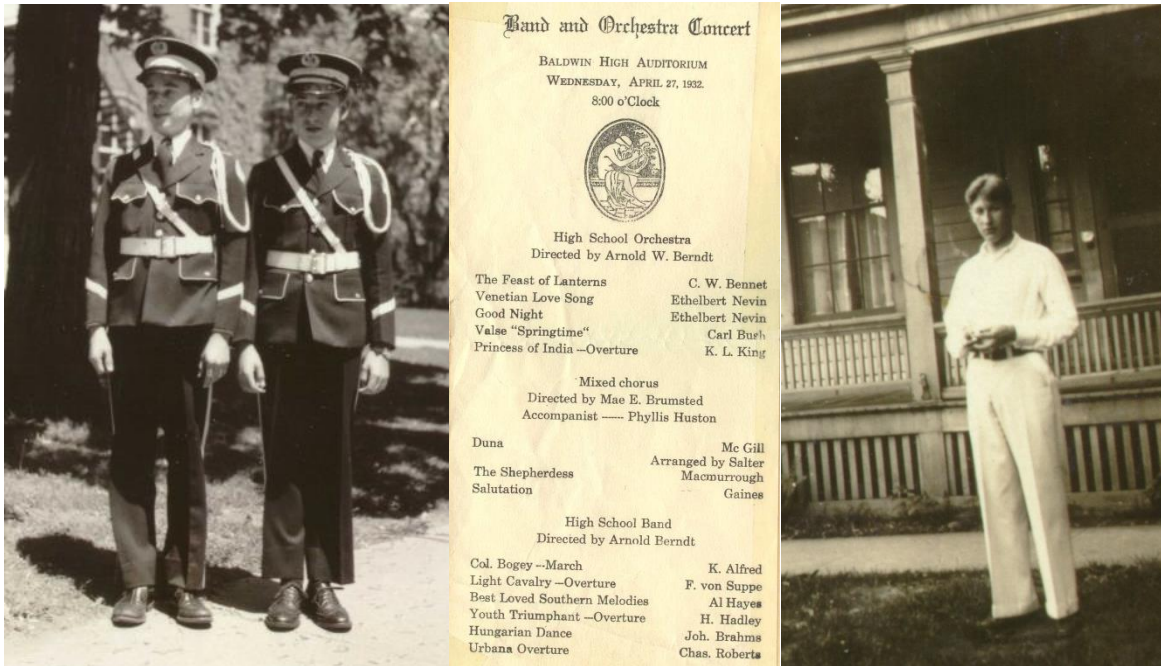 Band and Orchestra Concert
BALDWIN HIGH AUDITORIUM
WEDNESDAY, APRIL 27, 1932.
8:00 o'Clock
High School Orchestra
Directed by Arnold W. Berndt
The Feast of Lanterns C. W. Bennet
Venetian Love Song Ethelbert Nevin
Good Night Ethelbert Nevin
Valse "Springtime" Carl Bush
Princess of India --Overture K. L. King
Mixed chorus
Directed by Mae E. Brumsted
Accompanist ------ Phyllis Huston
Duna Mc Gill
Arranged by Salter
The Shepherdess Macmurrough
Salutation Gaines
High School Band
Directed by Arnold Berndt
Col. Bogey --March K. Alfred
Light Cavalry --Overture F. von Suppe
Best Loved Southern Melodies Al Hayes
Youth Triumphant --Overture H. Hadley
Hungarian Dance Joh. Brahms
Urbana Overture Chas. Roberts